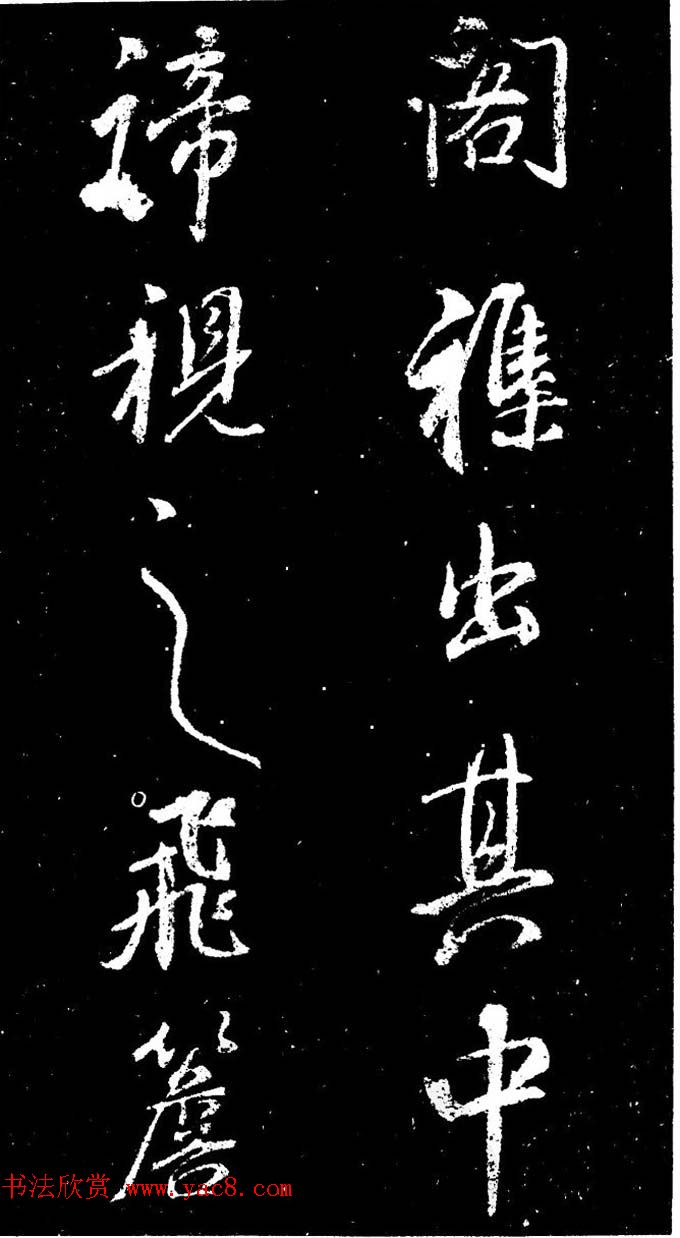 閣襍出其中
諦視之飛簷
书法欣赏 www.yac8.com